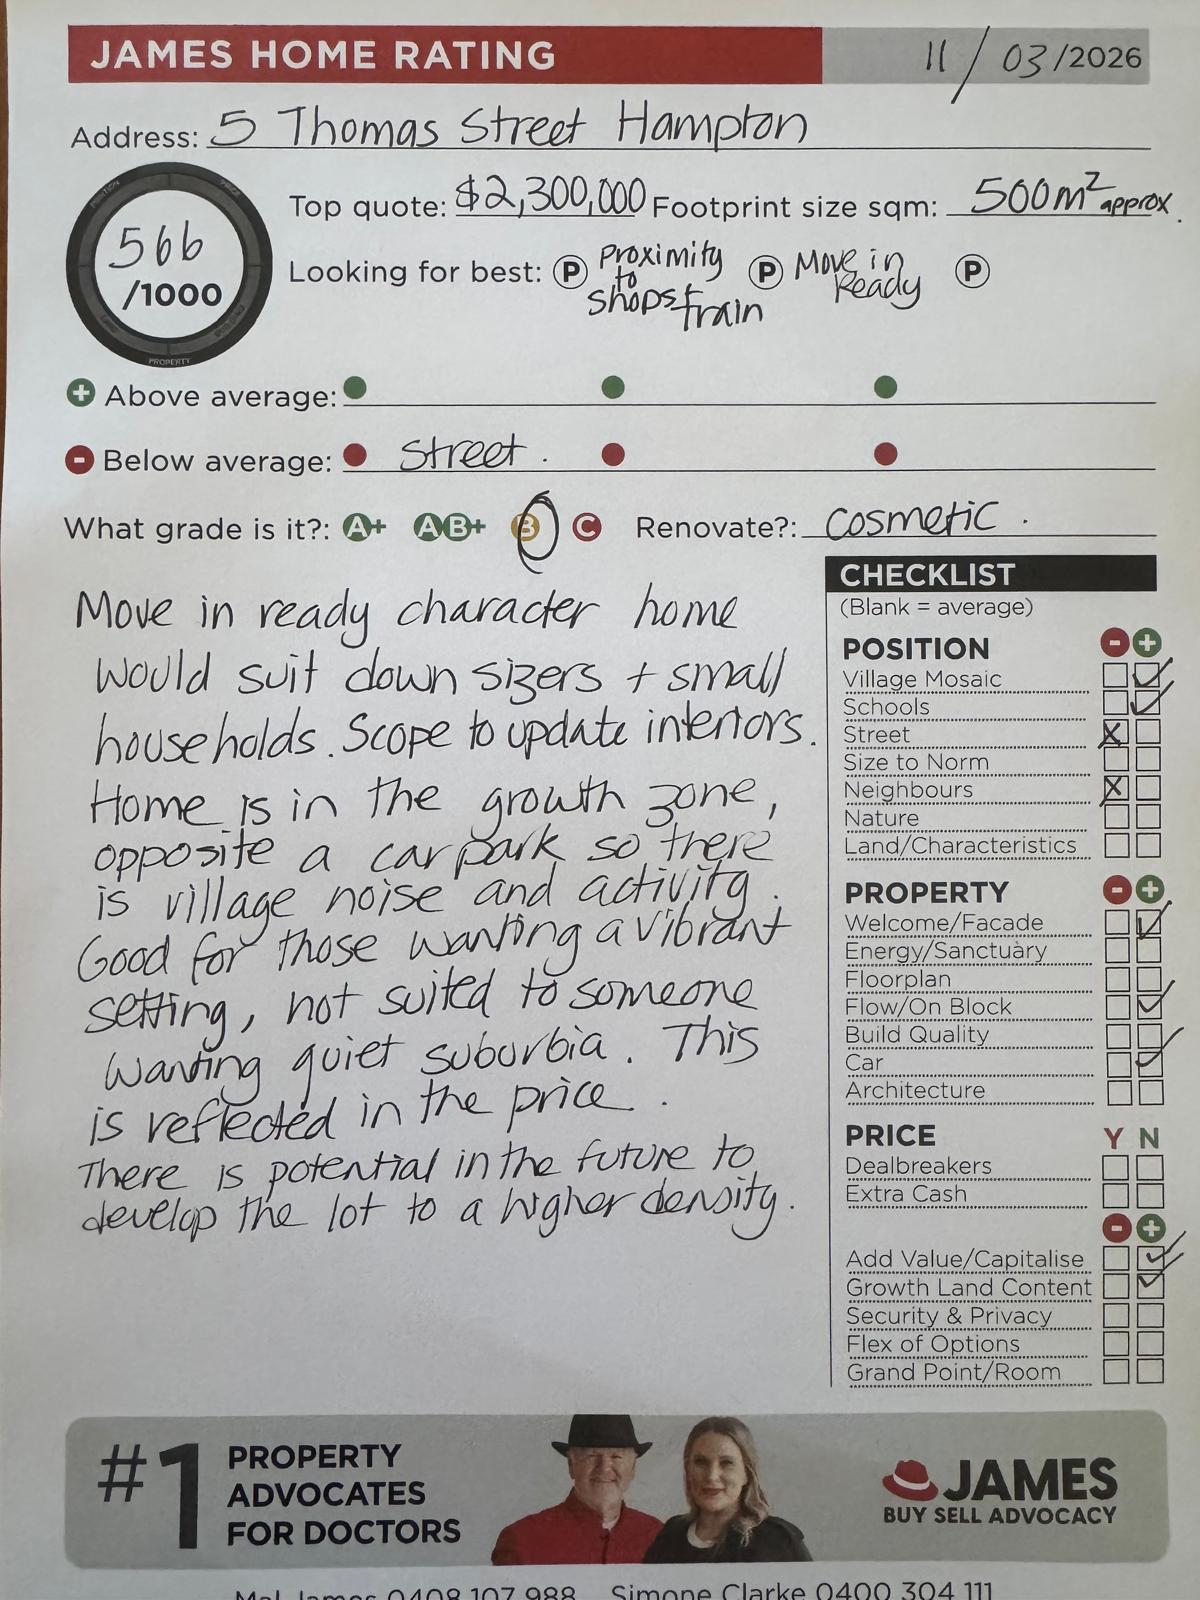 JAMES HOME RATING
11/03/2026
Address: 5 Thomas Street Hampton
566
/1000
PROPERTY
Top quote: $2,300,000 Footprint size sqm: 500m² approx.
Looking for best: P Proximity to shops + train P Move in Ready P
+ Above average:
- Below average: Street.
What grade is it?: A+ A B+ B C Renovate?: cosmetic.
Move in ready character home
would suit down sizers + small
households. Scope to update interiors.
Home is in the growth zone,
opposite a car park so there
is village noise and activity.
Good for those wanting a vibrant
setting, not suited to someone
wanting quiet suburbia. This
is reflected in the price.
There is potential in the future to
develop the lot to a higher density.
CHECKLIST
(Blank = average)
POSITION - +
Village Mosaic ✓
Schools ✓
Street X
Size to Norm
Neighbours X
Nature
Land/Characteristics
PROPERTY - +
Welcome/Facade ✓
Energy/Sanctuary
Floorplan
Flow/On Block ✓
Build Quality
Car ✓
Architecture
PRICE Y N
Dealbreakers
Extra Cash
- +
Add Value/Capitalise ✓
Growth Land Content ✓
Security & Privacy
Flex of Options
Grand Point/Room
#1
PROPERTY
ADVOCATES
FOR DOCTORS
JAMES
BUY SELL ADVOCACY
Mal James 0408 107 988 Simone Clarke 0400 304 111